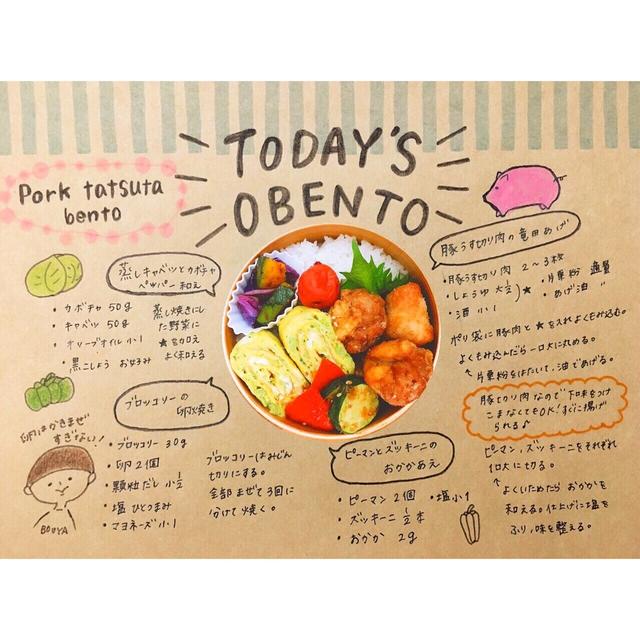 TODAY'S
OBENTO
Pork tatsuta
bento
蒸しキャベツとカボチャ
ペッパー和え
・カボチャ 50g
・キャベツ 50g
・オリーブオイル 小1
・黒こしょう お好み
蒸し焼きにし
た野菜に
★を加え
よく和える
ブロッコリーの
卵焼き
卵はかきまぜ
すぎない!
・ブロッコリー 30g
・卵 2個
・顆粒だし 小1/2
・塩 ひとつまみ
・マヨネーズ 小1
ブロッコリーはみじん
切りにする。
全部まぜて3回に
分けて焼く。
BOUYA
豚うす切り肉の竜田あげ
・豚うす切り肉 2～3枚
・しょうゆ 大1/2
・酒 小1
★
・片栗粉 適量
・あげ油 〃
ポリ袋に豚肉と★を入れよくもみ込む。
よくもみ込んだら一口大に丸める。
片栗粉をはたいて、油であげる。
豚うす切り肉なので下味をつけ
こまなくてもOK!すぐに揚げ
られる♪
ピーマンとズッキーニの
おかかあえ
・ピーマン 2個
・塩 小1
・ズッキーニ 1/2本
・おかか 2g
ピーマン、ズッキーニをそれぞれ
1口大に切る。
よくいためたら おかかを
和える。仕上げに塩を
ふり、味を整える。